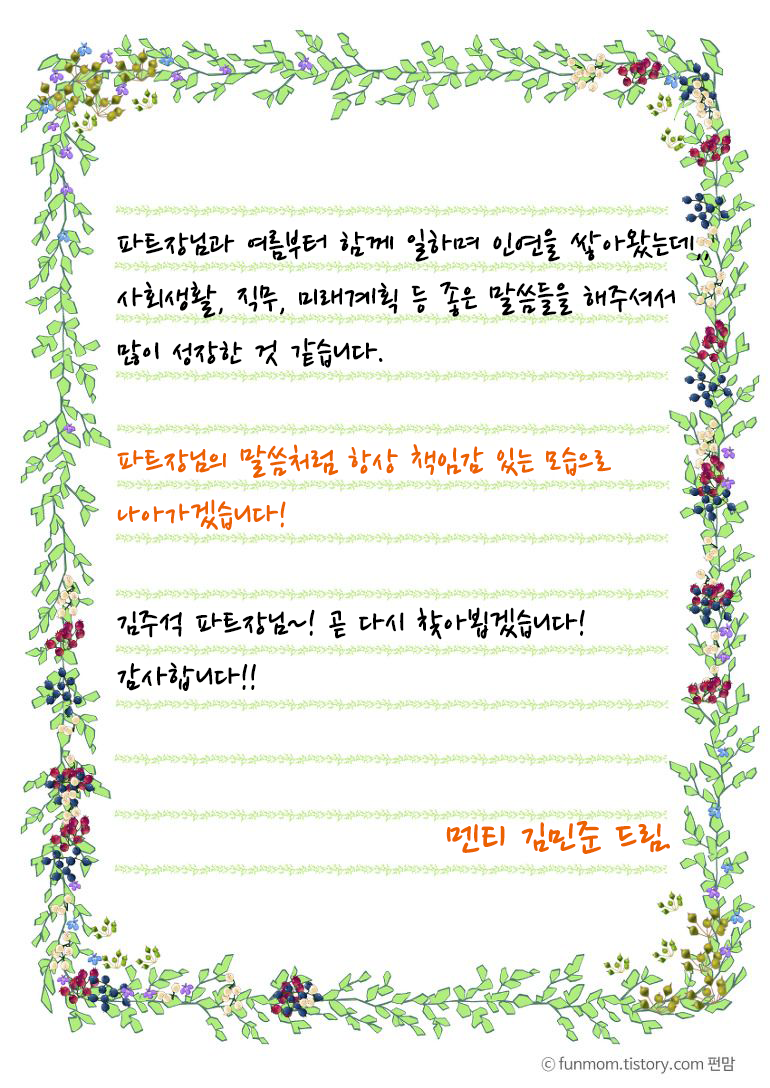 파트장님과 여름부터 함께 일하며 인연을 쌓아왔는데,,
사회생활, 직무, 미래계획 등 좋은 말씀들을 해주셔서
많이 성장한 것 같습니다.
파트장님의 말씀처럼 항상 책임감 있는 모습으로
나아가겠습니다!
김주석 파트장님~! 곧 다시 찾아뵙겠습니다!
감사합니다!!
멘티 김민준 드림.
© funmom.tistory.com 펀맘